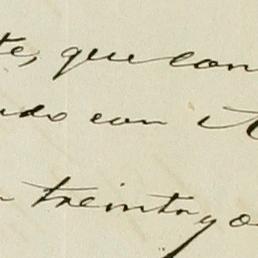 te, que con
ndo con A
n treinta y o